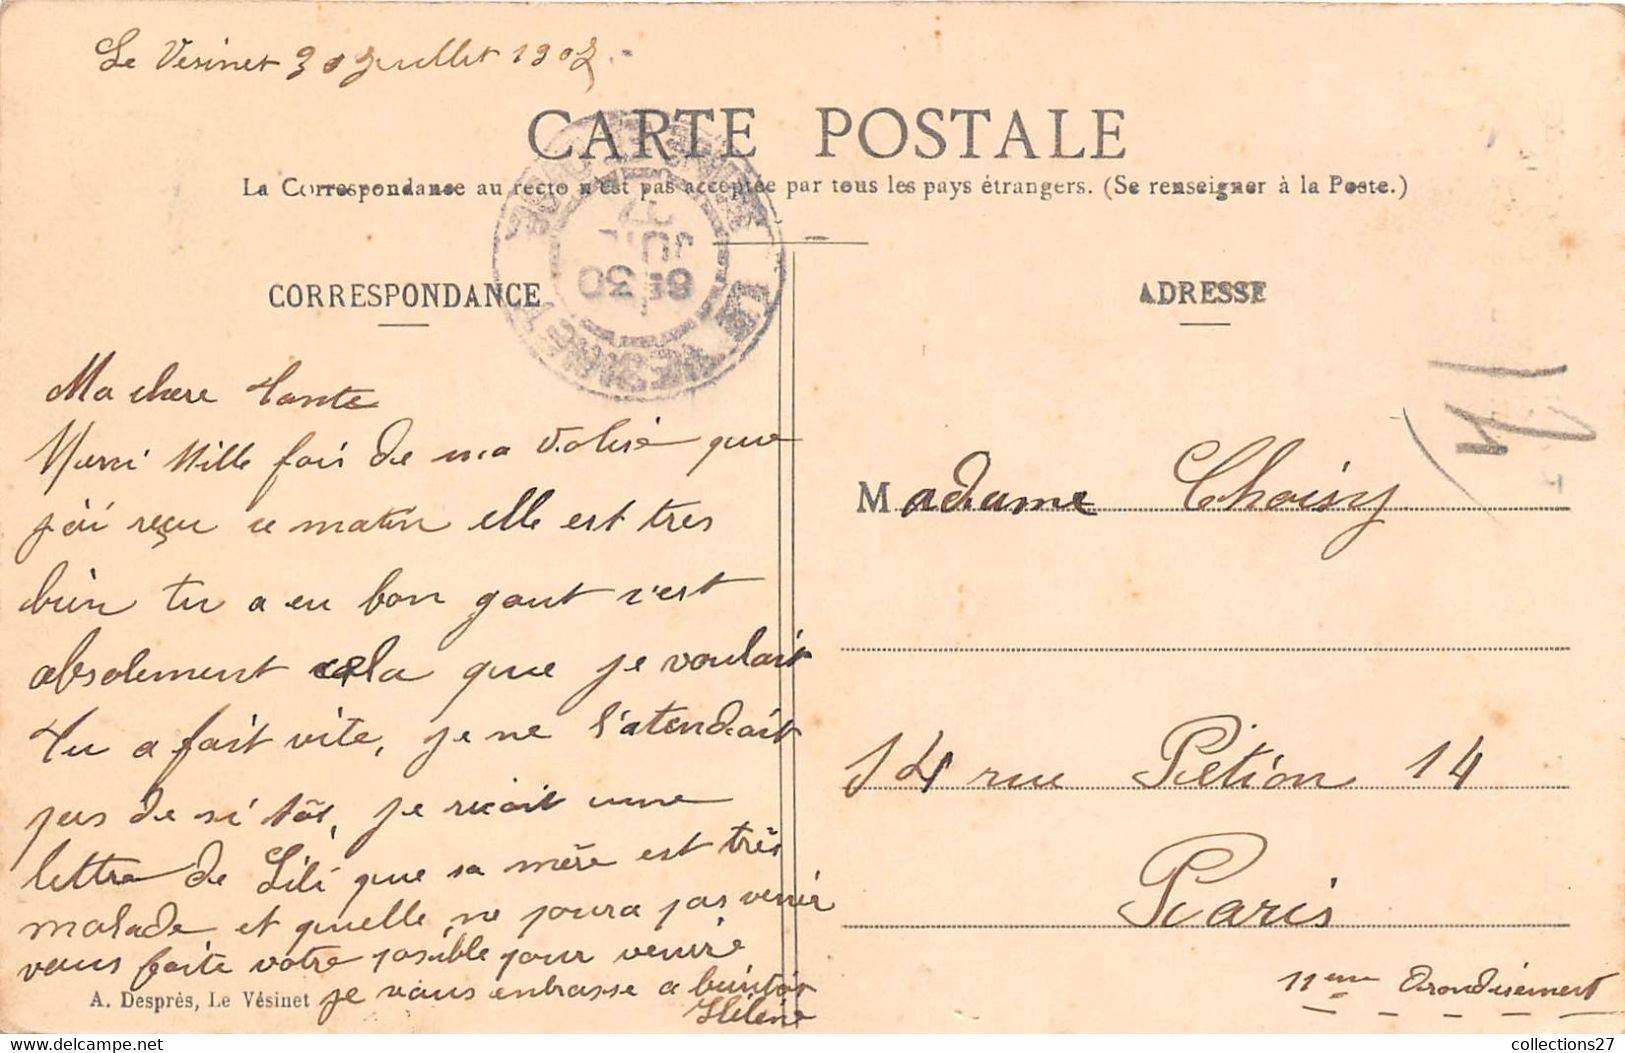 Le Vésinet 30 Juillet 1907
CARTE POSTALE
La Correspondance au recto n'est pas acceptée par tous les pays étrangers. (Se renseigner à la Poste.)
LE VESINET
8E 30
JUIL
07
CORRESPONDANCE
Ma chere tante
Merci Mille fois de ma valise que
j'ai reçu ce matin elle est tres
bien tu a eu bon gout c'est
absolement cela que je voulait
tu a fait vite, je ne l'atendait
pas de si tôt, je reçoit une
lettre de Lili que sa mère est très
malade et quelle ne poura pas venir
vous faite votre posible pour venire
je vous enbrasse a bientôt
Hélène
A. Després, Le Vésinet
ADRESSE
Madame Choisy
14 rue Pétion 14
Paris
11eme Arondisement
collections27